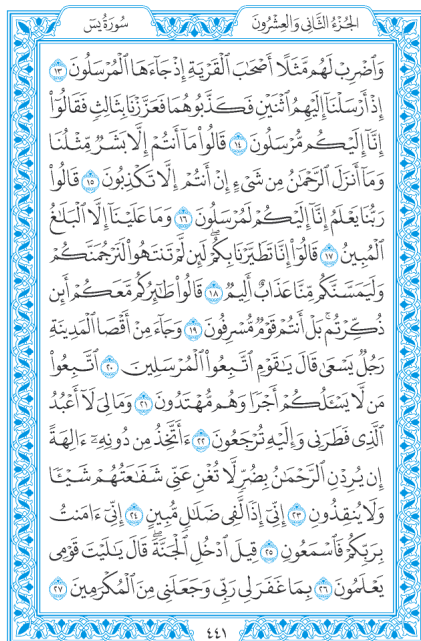 الجزء الثاني والعشرون
سورة يس
وَٱضْرِبْ لَهُم مَّثَلًا أَصْحَٰبَ ٱلْقَرْيَةِ إِذْ جَآءَهَا ٱلْمُرْسَلُونَ ١٣
إِذْ أَرْسَلْنَآ إِلَيْهِمُ ٱثْنَيْنِ فَكَذَّبُوهُمَا فَعَزَّزْنَا بِثَالِثٍ فَقَالُوٓا۟
إِنَّآ إِلَيْكُم مُّرْسَلُونَ ١٤ قَالُوا۟ مَآ أَنتُمْ إِلَّا بَشَرٌ مِّثْلُنَا
وَمَآ أَنزَلَ ٱلرَّحْمَٰنُ مِن شَىْءٍ إِنْ أَنتُمْ إِلَّا تَكْذِبُونَ ١٥ قَالُوا۟
رَبُّنَا يَعْلَمُ إِنَّآ إِلَيْكُمْ لَمُرْسَلُونَ ١٦ وَمَا عَلَيْنَآ إِلَّا ٱلْبَلَٰغُ
ٱلْمُبِينُ ١٧ قَالُوٓا۟ إِنَّا تَطَيَّرْنَا بِكُمْ ۖ لَئِن لَّمْ تَنتَهُوا۟ لَنَرْجُمَنَّكُمْ
وَلَيَمَسَّنَّكُم مِّنَّا عَذَابٌ أَلِيمٌ ١٨ قَالُوا۟ طَٰٓئِرُكُم مَّعَكُمْ ۚ أَئِن
ذُكِّرْتُم ۚ بَلْ أَنتُمْ قَوْمٌ مُّسْرِفُونَ ١٩ وَجَآءَ مِنْ أَقْصَا ٱلْمَدِينَةِ
رَجُلٌ يَسْعَىٰ قَالَ يَٰقَوْمِ ٱتَّبِعُوا۟ ٱلْمُرْسَلِينَ ٢٠ ٱتَّبِعُوا۟
مَن لَّا يَسْـَٔلُكُمْ أَجْرًا وَهُم مُّهْتَدُونَ ٢١ وَمَا لِىَ لَآ أَعْبُدُ
ٱلَّذِى فَطَرَنِى وَإِلَيْهِ تُرْجَعُونَ ٢٢ ءَأَتَّخِذُ مِن دُونِهِۦٓ ءَالِهَةً
إِن يُرِدْنِ ٱلرَّحْمَٰنُ بِضُرٍّ لَّا تُغْنِ عَنِّى شَفَٰعَتُهُمْ شَيْـًٔا
وَلَا يُنقِذُونِ ٢٣ إِنِّىٓ إِذًا لَّفِى ضَلَٰلٍ مُّبِينٍ ٢٤ إِنِّىٓ ءَامَنتُ
بِرَبِّكُمْ فَٱسْمَعُونِ ٢٥ قِيلَ ٱدْخُلِ ٱلْجَنَّةَ ۖ قَالَ يَٰلَيْتَ قَوْمِى
يَعْلَمُونَ ٢٦ بِمَا غَفَرَ لِى رَبِّى وَجَعَلَنِى مِنَ ٱلْمُكْرَمِينَ ٢٧
٤٤١